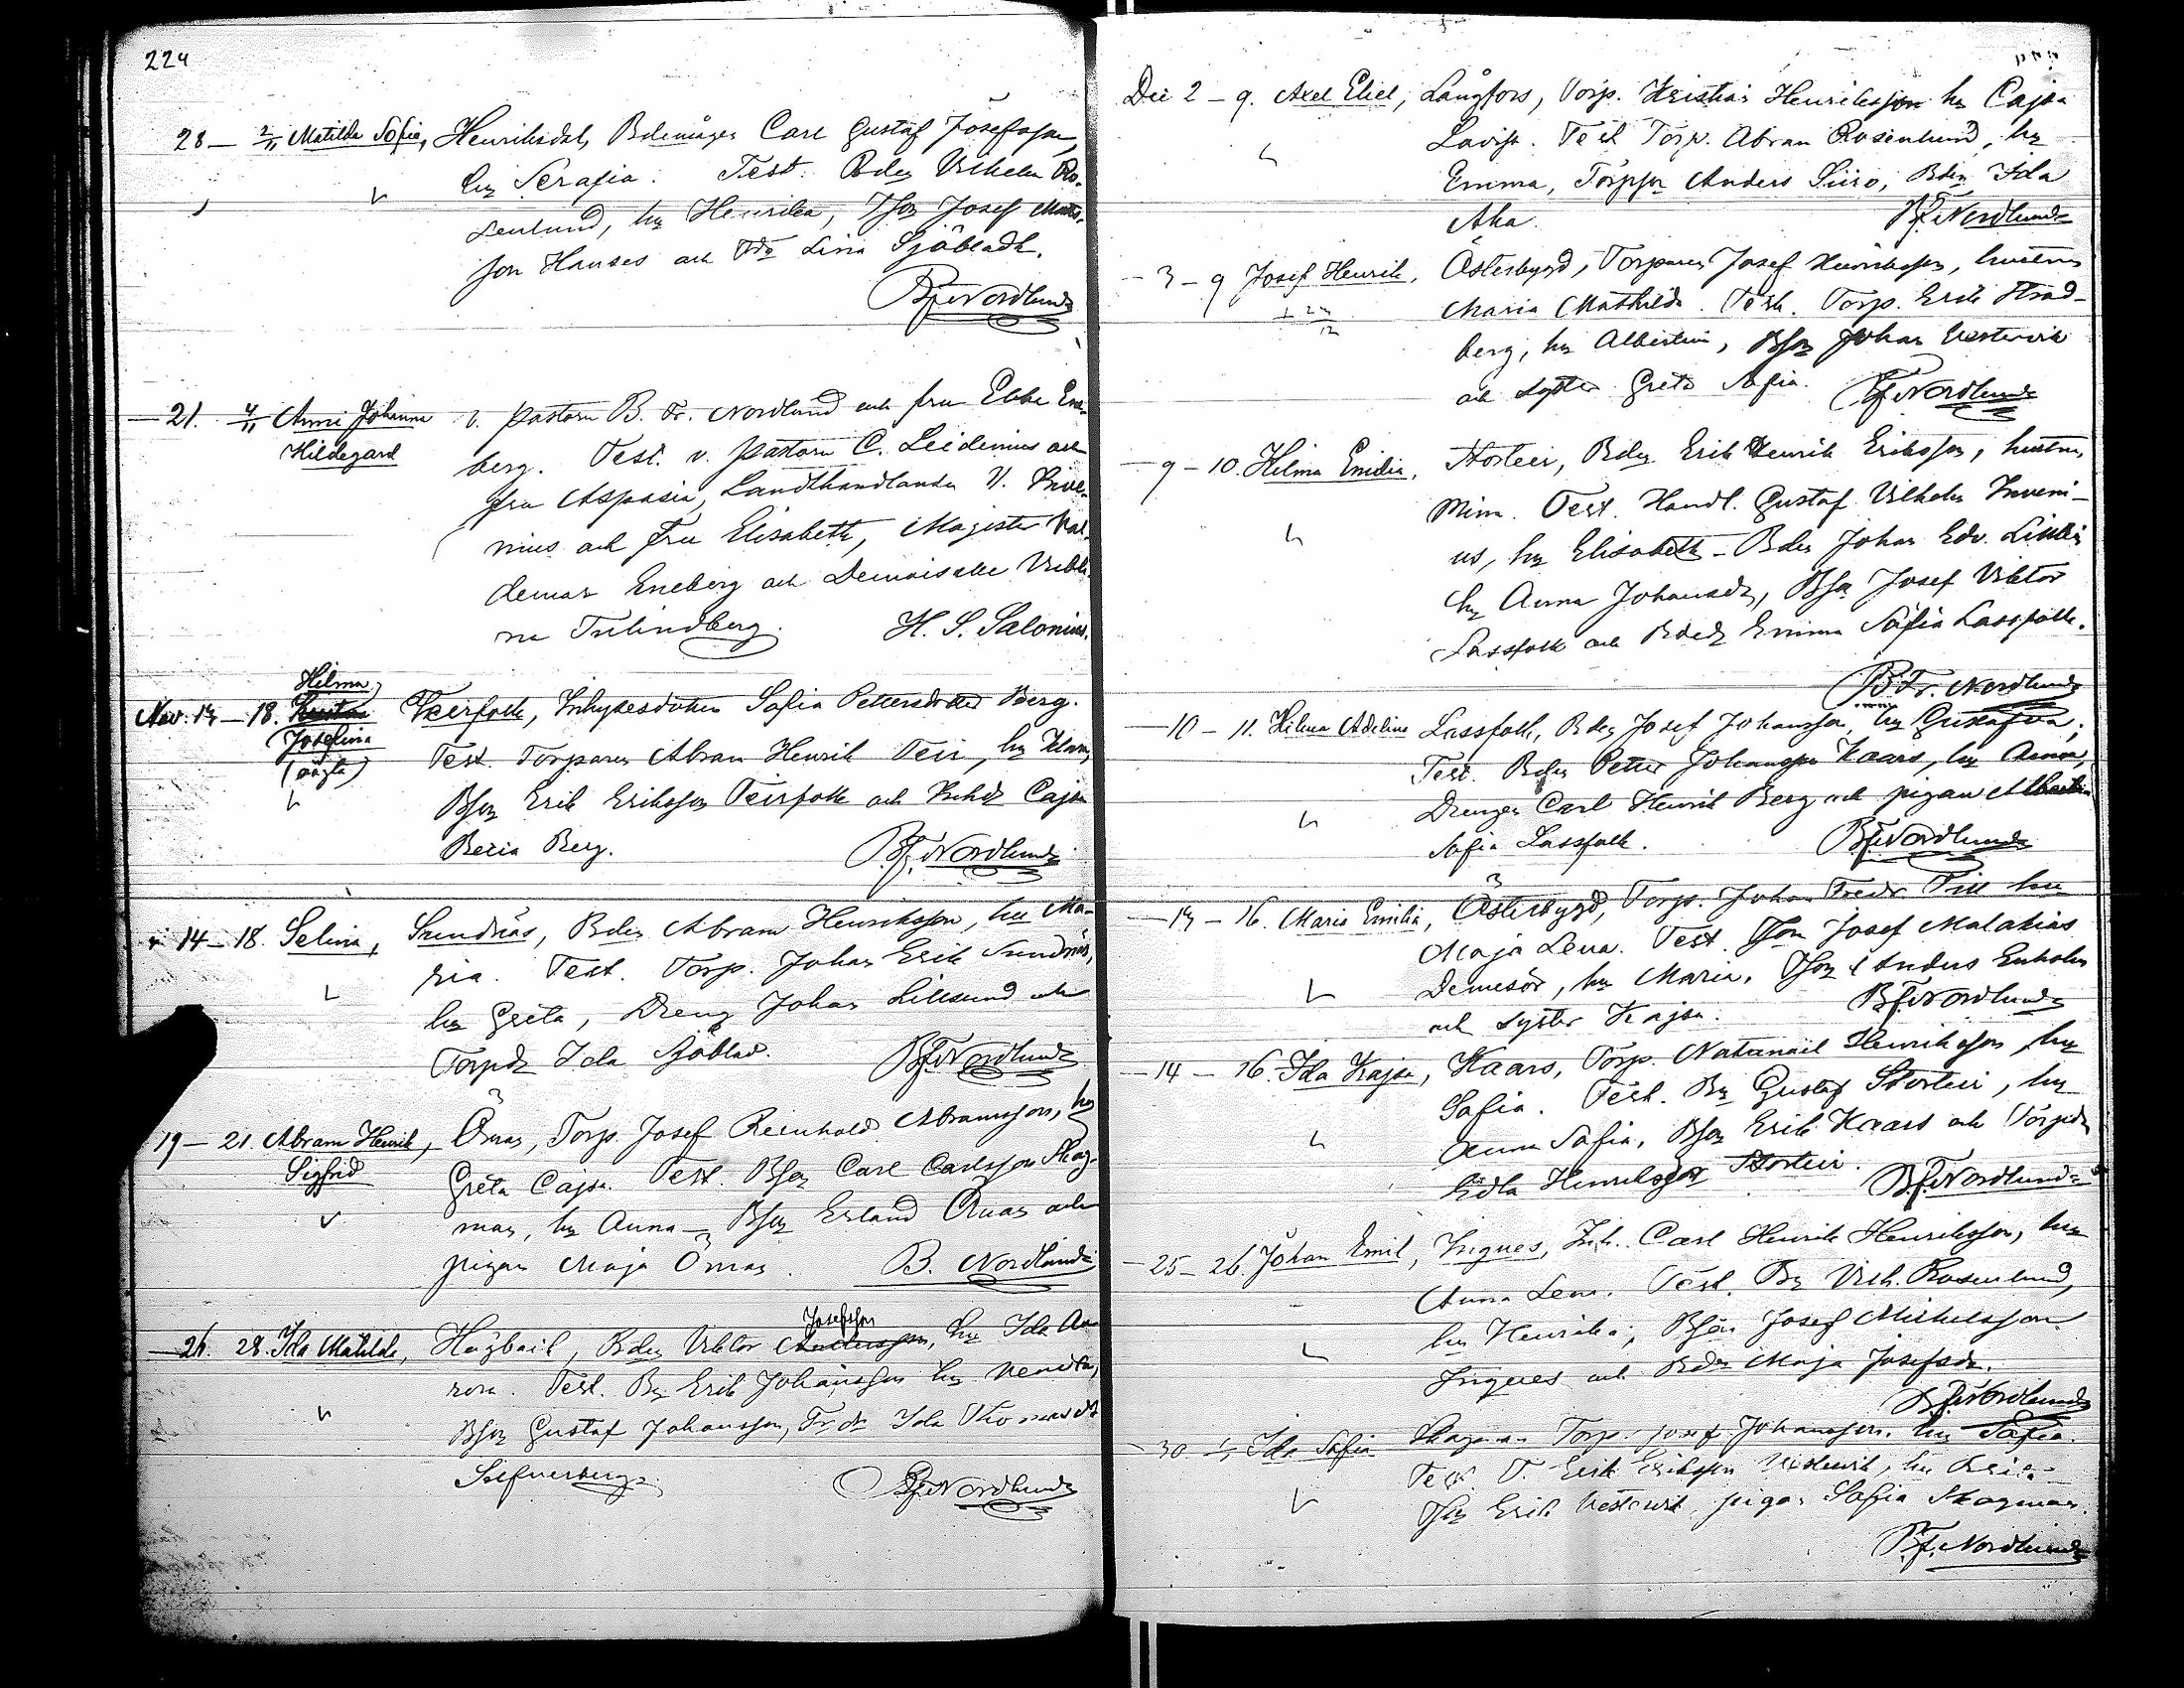 224
28 — 2/11 Matilda Sofia, Henriksdal, Bdemågen Carl Gustaf Josefsson,
hu Serafia. Test. Bden Vilhelm Ro-
senlund, hu Henrika, Json Josef Matts-
son Hanses och Lina Sjöbladh.
BFr Nordlund
— 21. 4/11 Anni Johanna v. pastorn B. Fr. Nordlund och fru Ebba Ene-
Hildegard berg. Test. v. pastorn C. Leidenius och
fru Aspasia, Landthandlanden V. Inve-
nius och fru Elisabeth, Magister Val-
demar Eneberg och Demoiselle
na Tulindberg. H. S. Salonius.
Hilma
Nov. 14 — 18. Teirfolk, Inhysesdottren Sofia Pettersdotter Berg.
Josefina
(oägta) Test. Torparen Abram Henrik Teir, hu
Bson Erik Eriksson Teirfolk och Inhdr Cajsa
Beria Berg. BFr Nordlund
" 14 — 18. Selina, Sundnäs, Bden Abram Henriksson, hu Ma-
ria. Test. Torp. Johan Erik Sundnäs,
hu Greta, Dreng Johan Lillsund och
Torpdr Ida Sjöblad. BFr Nordlund
19 — 21. Abram Henrik,Ömas, Torp. Josef Reinhold Abramsson, hu
Sigfrid Greta Cajsa. Test. Bson Carl Carlsson Skog-
man, hu Anna — Bson Erland Åuas och
pigan Maja Ömas. B. Nordlund
— 26. 28. Ida Matilda, Högback, Bden Viktor Andersson, hu Ida Au-
Josefsson
rora. Test. Bn Erik Johansson hu Vendla,
Bson Gustaf Johansson, Ida Thomasdr
BFr Nordlund
Dec 2 — 9. Axel Eliel, Långfors, Torp. Kristian Henriksson hu Cajsa
Lovisa. Test Torp. Abram Rosenlund, hu
Emma, Torpson Anders Siiro, Bden Ida
Aha. BFr Nordlund
— 3 — 9 Josef Henrik, Österbygd, Torparen Josef Henriksson, hustrun
+ 24/12 Maria Mathilda. Test. Torp. Erik Strad-
berg, hu Albertina, Bson Johan Vestervik
och syster Greta Sofia. BFr Nordlund
— 9 — 10. Hilma Emilia, Storteir, Bden Erik Henrik Eriksson, hustrun
Mina. Test. Handl. Gustaf Vilhelm Inveni-
us, hu Elisabeth — Bden Johan Edv.
hu Anna Johansdr, Bson Josef Viktor
Lassfolk och Bdedr Emma Sofia Lassfolk.
B. Fr. Nordlund
— 10 — 11. Hilma Adelina Lassfolk, Bden Josef Johansson, hu Gustafva;
Test. Bden Petter Johansson Kaars, hu Anna,
Drengen Carl Henrik Berg och pigan Albertina
Sofia Lassfolk. BFr Nordlund
— 14 — 16. Maria Emilia, Österbygd, Torp. Johan Fredr. Till hu
Maja Lena. Test. Json Josef Malakias
Demesör, hu Maria, Json Anders Enholm
och syster Kajsa. BFr Nordlund
— 14 — 16. Ida Kajsa, Kaars, Torp. Natanael Henriksson, hu
Sofia. Test. Bn Gustaf Storteir, hu
Anna Sofia, Bson Erik Kaars och Torpdr
Edla Henriksdr Storteir. B.F. Nordlund
— 25 — 26. Johan Emil, Ingves, Inh. Carl Henrik Henriksson, hu
Anna Lena. Test. Bn Vilh. Rosenlund,
hu Henrika; Bson Josef Mickelsson
Ingves och Bdr Maja Josefsdr.
BFr Nordlund
— 30. 1/1 Ida Sofia Skagman Torp. Josef Johansson, hu Sofia.
Test. T. Erik Eriksson Vestervik, hu
Json Erik Vestervik, pigan Sofia Skagman.
B.F. Nordlund